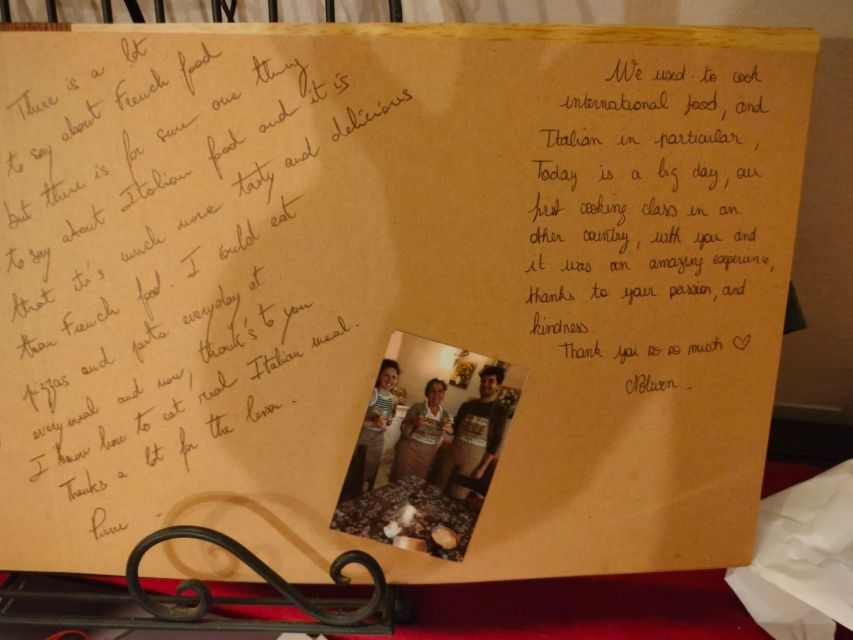 There is a lot
to say about French food
but there is for sure one thing
to say about Italian food and it is
that it's much more tasty and delicious
than French food. I could eat
pizzas and pasta everyday at
every meal and now, thank's to you
I know how to eat real Italian meal.
Thanks a lot for the lesson.
Pierre
We used to cook
international food, and
Italian in particular,
Today is a big day, our
first cooking class in an
other country, with you and
it was an amazing experience,
thanks to your passion, and
kindness.
Thank you so so much ♡
Nolwen